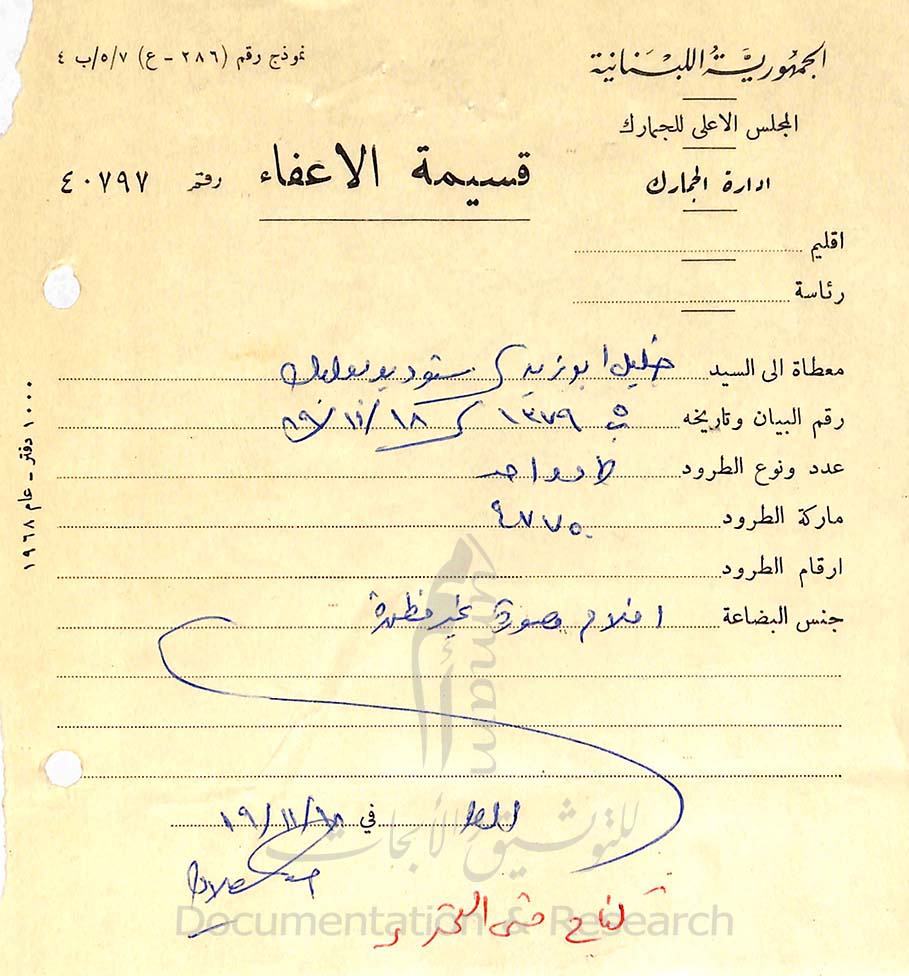 الجمهورية اللبنانية
نموذج رقم (٢٨٦ - ع) ٥/٧/ب ٤
المجلس الاعلى للجمارك
ادارة الجمارك
قسيمة الاعفاء رقم ٤٠٧٩٧
اقليم
رئاسة
معطاة الى السيد خليل ابو زيد ستوديو بعلبك
رقم البيان وتاريخه ١٣٧٩ ١٨/١١/٦٩
عدد ونوع الطرود طرد واحد
ماركة الطرود ٤٧٧٥
ارقام الطرود
جنس البضاعة افلام مصورة غير مظهرة
في ١٨/١١/٦٩
١٠٠٠ دفتر - عام ١٩٦٨
umam
للتوثيق والأبحاث
Documentation & Research